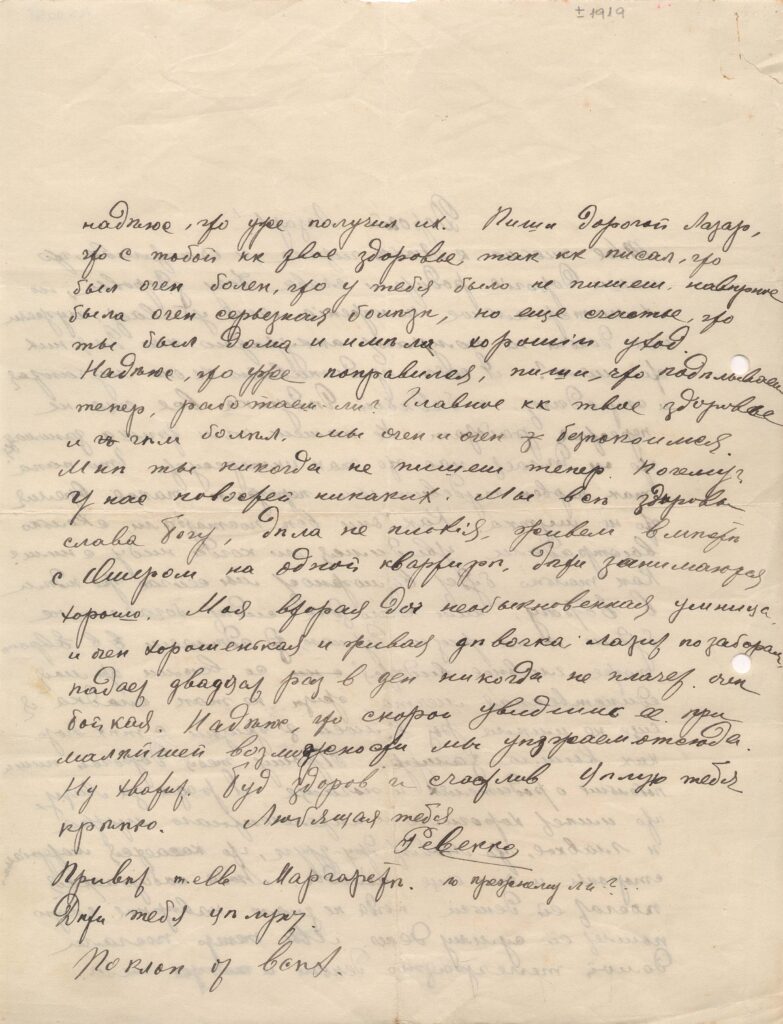 ± 1919
надѣюс, что уже получил их. Пиши дорогой Лазар,
что с тобой кк твое здоровье, так кк писал, что
был очен болен, что у тебя было не пишеш. наверное
была очен серьезная болѣзн, но еще счастье, что
ты был дома и имѣла хороший уход.
Надѣюс, что уже поправился, пиши, что
тепер, работаеш ли? Главное кк твое здоровье
и чѣм болѣл. мы очен и очен безпокоимся.
Мнѣ ты никогда не пишеш тепер. Почему?
У нас новостей никаких. Мы всѣ здоровы
слава Богу, дѣла не плохія, живем вмѣстѣ
с Ошером на одной квартирѣ. Дѣти занимаются
хорошо. Моя вторая доч необыкновенная умница
и очен хорошенькая и живая дѣвочка лазит по заборам,
падает двадцат раз в ден никогда не плачет. очен
бойкая. Надѣюс, что скоро увидиш ее. при
малѣйшей возможности мы уѣзжаем отсюда.
Ну хватит. Буд здоров и счастлив Цѣлую тебя
крѣпко. Любящая тебя
Ревекка
Привѣт Маргаретѣ. по прежнему ли?..
Дѣти тебя цѣлуют.
Поклон от всѣх.